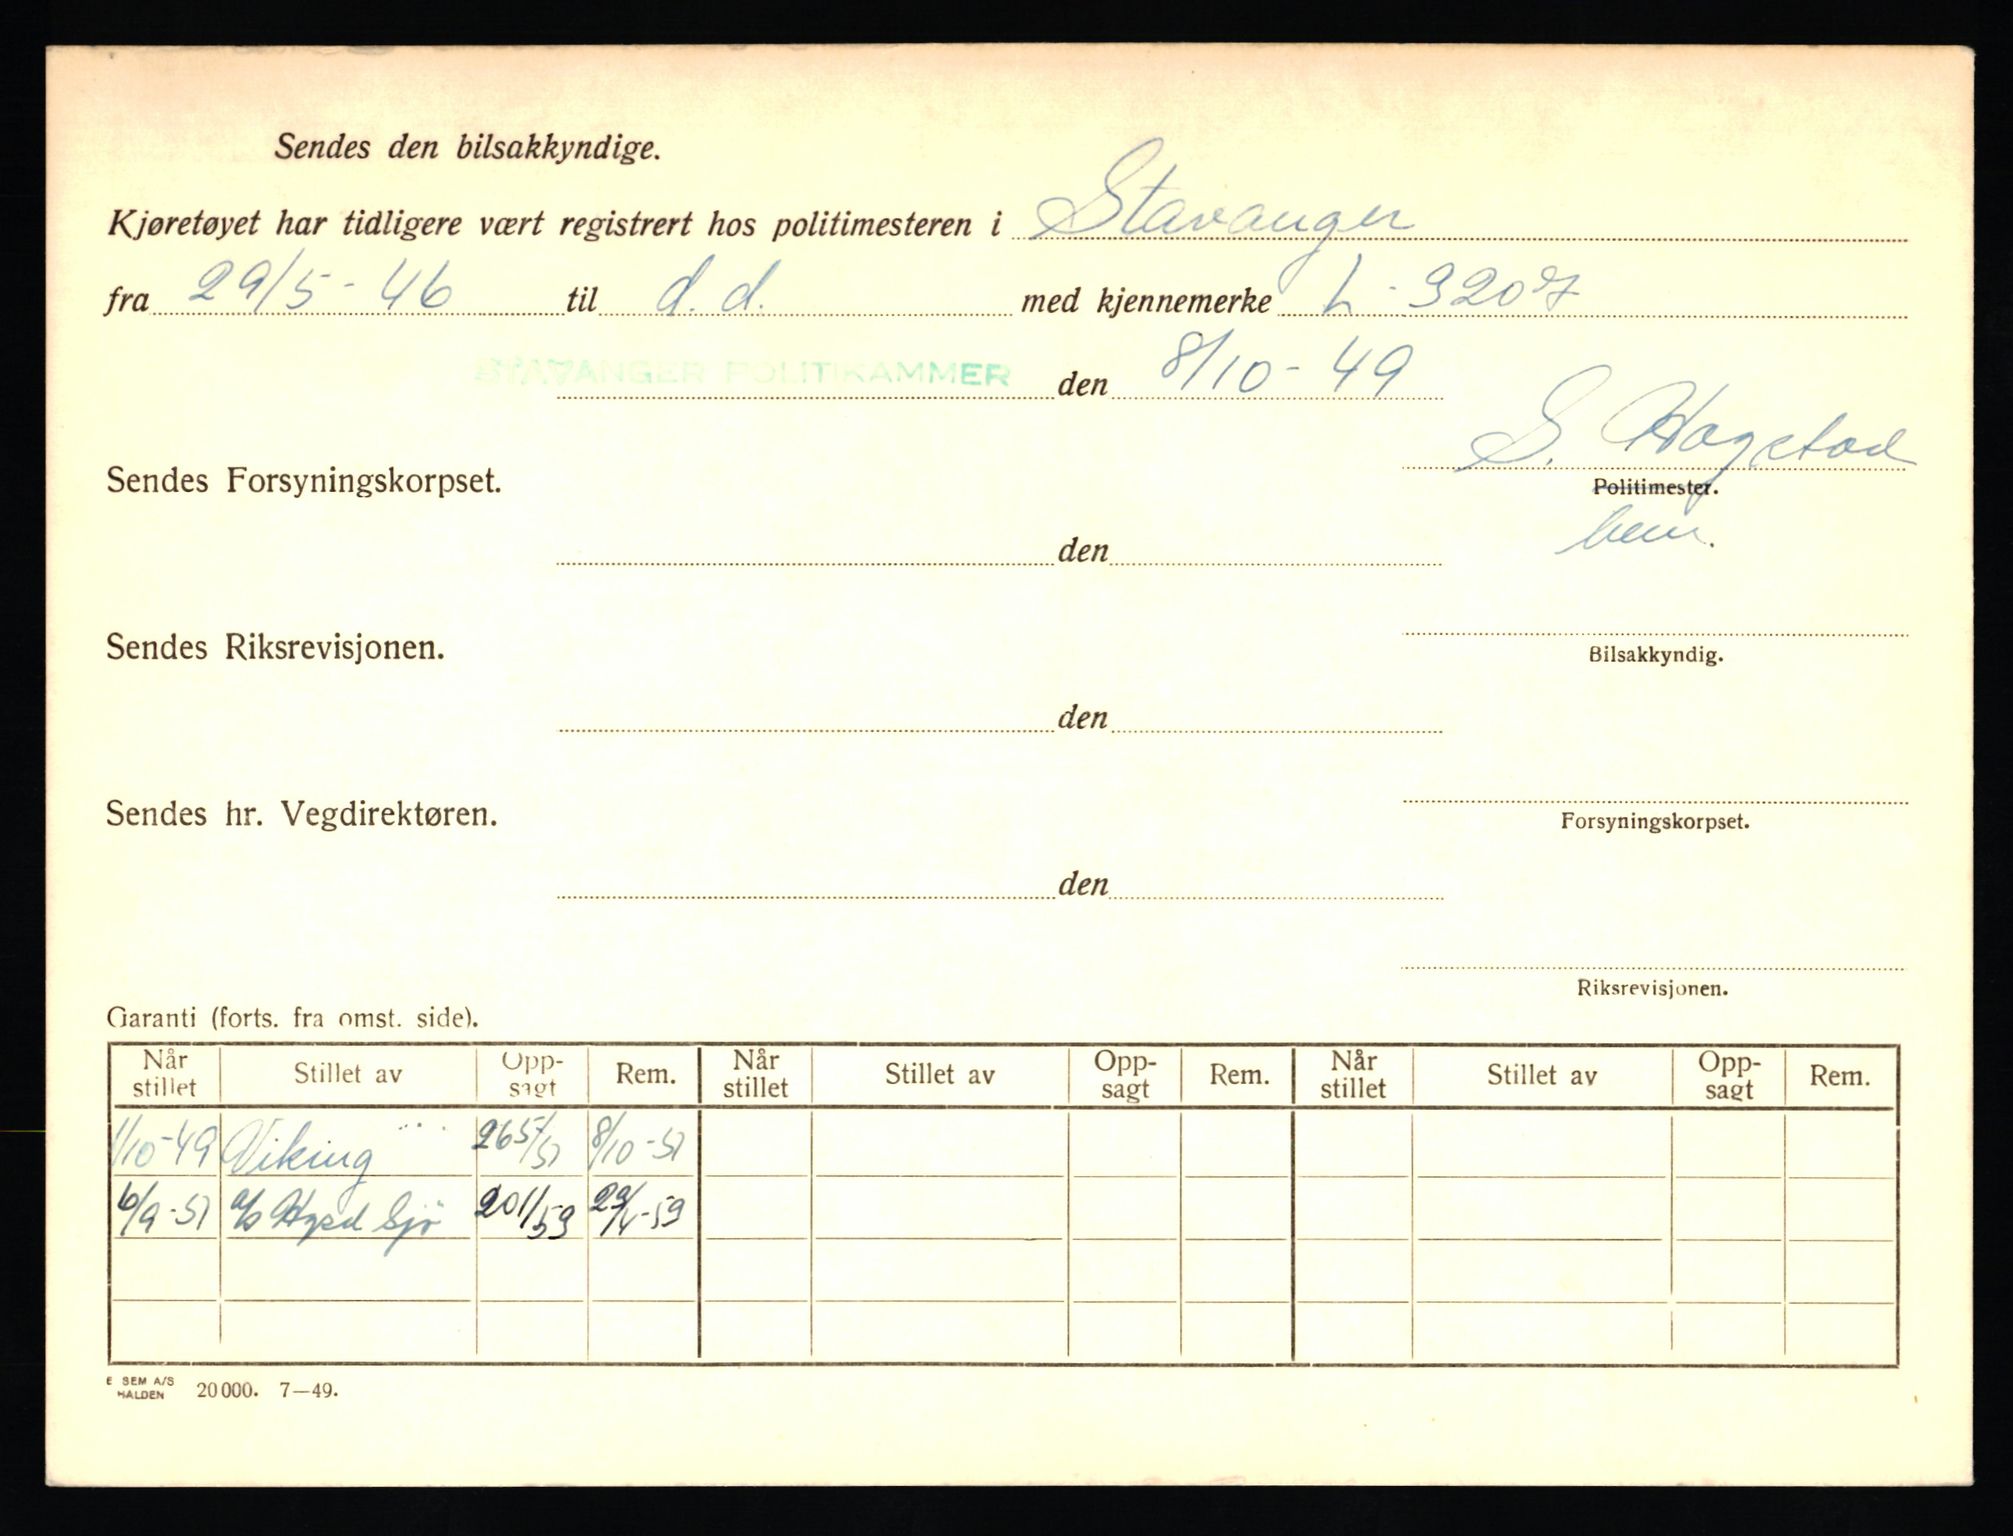 Sendes den bilsakkyndige.
Kjøretøyet har tidligere vært registrert hos politimesteren i Stavanger
fra 29/5 - 46 til d. d. med kjennemerke L - 3207
STAVANGER POLITIKAMMER den 8/10 - 49
S. Hogstad
Sendes Forsyningskorpset.
Politimester.
den
Sendes Riksrevisjonen.
Bilsakkyndig.
den
Sendes hr. Vegdirektøren.
Forsyningskorpset.
den
Riksrevisjonen.
Garanti (forts. fra omst. side).
Når stillet Stillet av Opp-sagt Rem. Når stillet Stillet av Opp-sagt Rem. Når stillet Stillet av Opp-sagt Rem.
1/10-49 Viking 8/10-51
6/9-51 Sjö 20 1/59
E SEM A/S
HALDEN 20000. 7—49.